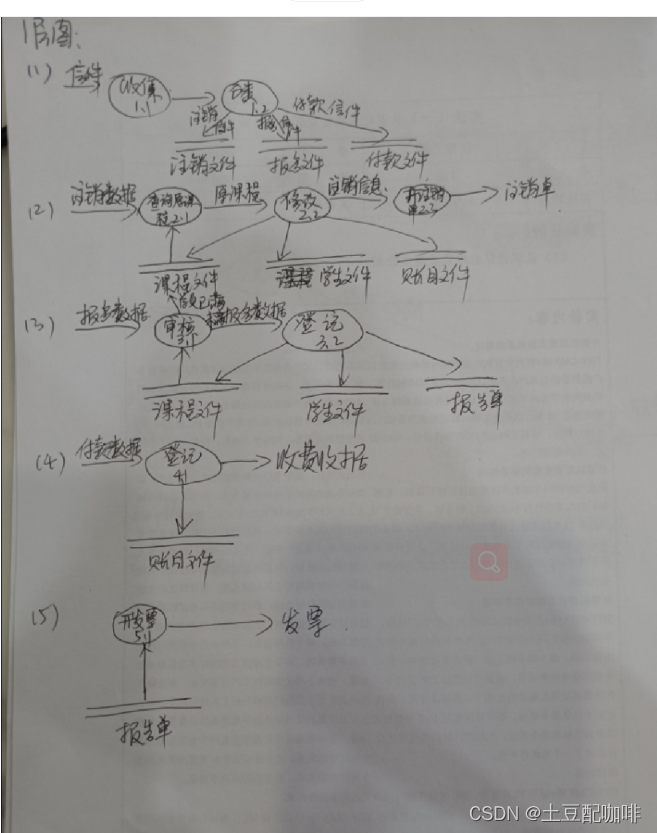 1层图:
(1) 信件 收集 1.1 分类 1.2 付款信件
注销信件 报名信件
注销文件 报名文件 付款文件
(2) 注销数据 2.1 原课程 修改 2.2 注销信息 开注销单 2.3 注销单
课程文件 学生文件 账目文件
(3) 报名数据 审核 3.1 报名数据 登记 3.2
课程文件 学生文件 报告单
(4) 付款数据 登记 4.1 收费收据
账目文件
(5) 开发票 5.1 发票.
报告单
CSDN @土豆配咖啡